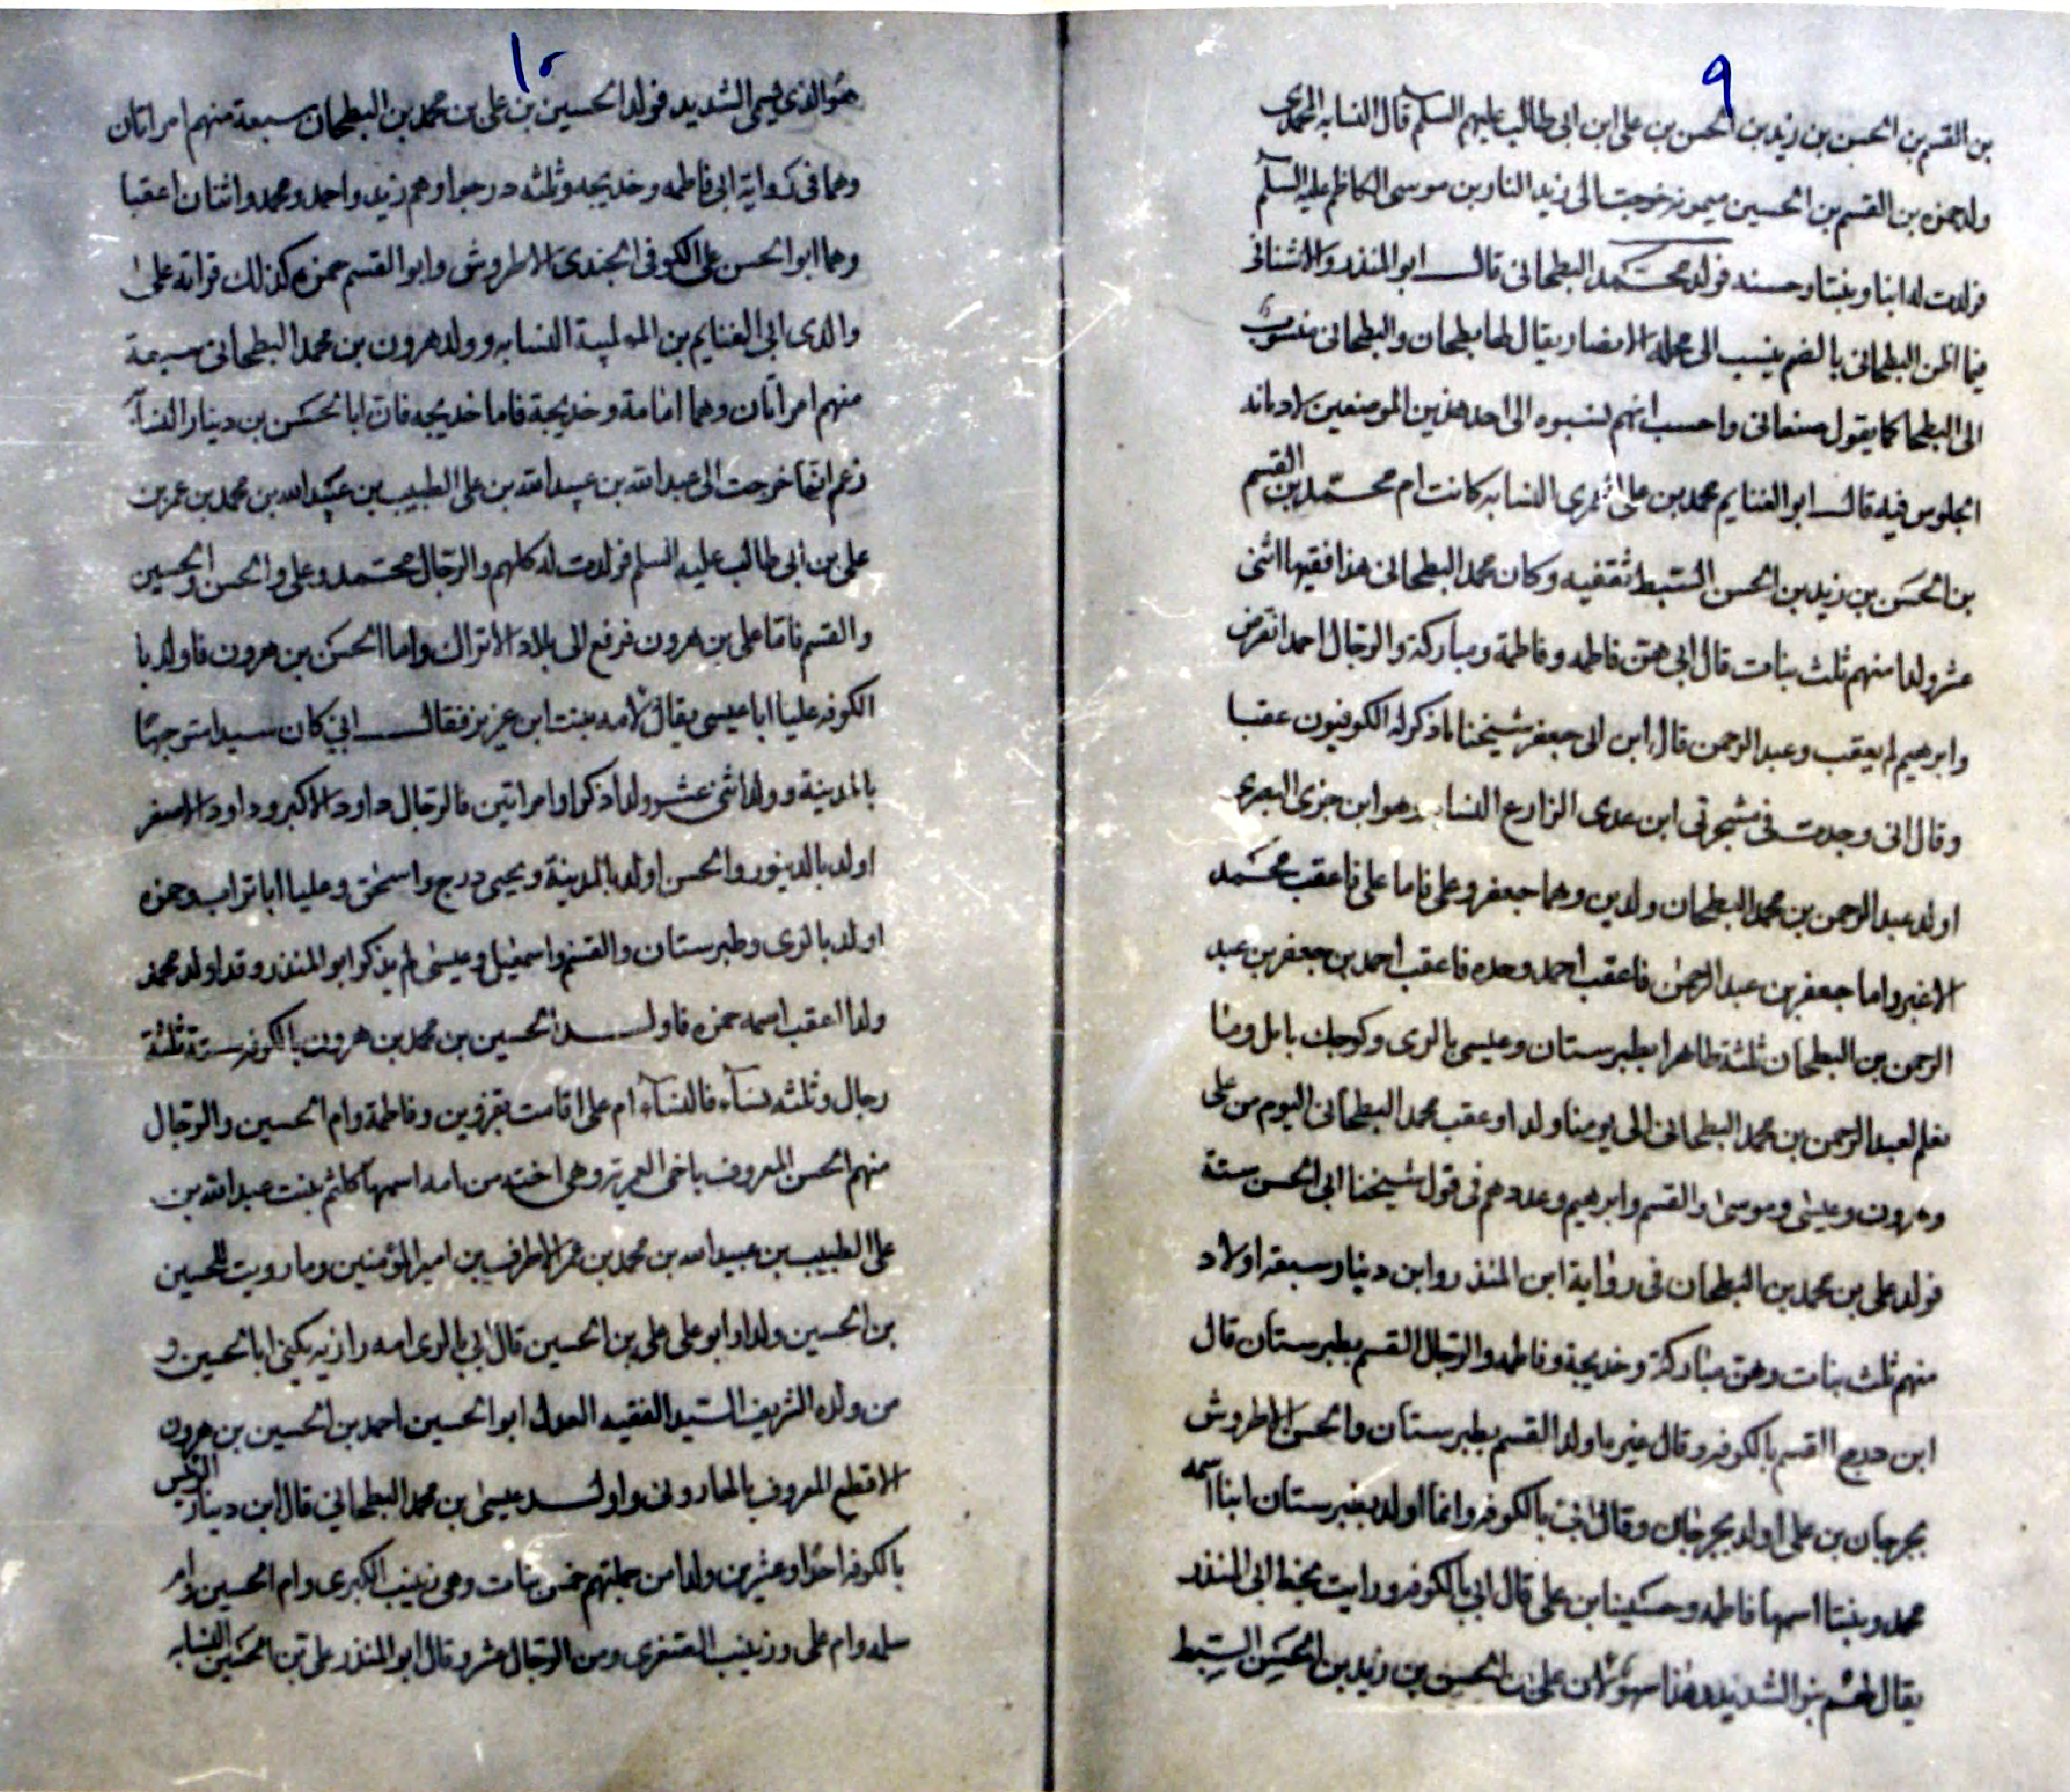 ٩
بن القسم بن الحسن بن زيد بن الحسن بن على ابن ابى طالب عليهم السلم قال النسابه العمرى
ولد حمزه بن القسم بن الحسين ميمونه خرجت الى زيد النار بن موسى الكاظم عليه السلم
فولدت له ابنا وبنتا وحسنه فولد محمد البطحانى قال ابو المنذر والاشنانى
فيما اظن البطحانى بالضم ينسب الى محلة الانصار ويقال لها بطحان والبطحانى منسوب
الى البطحا كما يقول صنعانى واحسب انهم نسبوه الى احد هذين الموضعين لادمانه
الجلوس فيه قال ابو الغنايم محمد بن على العمرى النسابه كانت ام محمد بن القسم
بن الحسن بن زيد بن الحسن السبط ثقفيه وكان محمد البطحانى هذا فقيها اثنى
عشر ولدا منهم ثلث بنات قال ابى هن فاطمه وفاطمة ومباركة والرجال احمد انقرض
وابرهيم لم يعقب وعبد الرحمن قال ابن ابى جعفر شيخنا ما ذكر له الكوفيون عقبا
وقال انى وجدت فى مشجرتى ابن عدى الزارع النسابه وهو ابن جزى البصرى
اولد عبد الرحمن بن محمد البطحان ولدين وهما جعفر وعلى فاما على فاعقب محمد
الاغبر واما جعفر بن عبد الرحمن فاعقب احمد وحده فاعقب احمد بن جعفر بن عبد
الرحمن بن البطحان ثلثة طاهرا بطبرستان وعيسى بالرى وكوجك بامل وما
نعلم لعبد الرحمن بن محمد البطحانى الى يومنا ولدا وعقب محمد البطحانى اليوم من على
وهرون وعيسى وموسى والقسم وابرهيم وعددهم فى قول شيخنا ابى الحسن ستة
فولد على بن محمد بن البطحان فى رواية ابن المنذر وابن دينار سبعة اولاد
منهم ثلث بنات وهن مباركة وخديجة وفاطمه والرجال القسم بطبرستان قال
ابن درج القسم بالكوفه وقال غيره ما ولد القسم بطبرستان والحسن الاطروش
بجرجان بن على اولد بجرجان وقال ابى بالكوفه وانما اولد بغبرستان ابنا اسمه
محمد وبنتا اسمها فاطمه وحسينا بن على قال ابى بالكوفه ورايت بخط ابى المنذر
يقال لهم بنو الشديد وهذا سهو لان على بن الحسن بن زيد بن الحسن السبط
١٠
هو الذى يسمى الشديد فولد الحسين بن على بن محمد بن البطحان سبعة منهم امراتان
وهما فى رواية ابى فاطمه وخديجه وثلثه درجوا وهم زيد واحمد ومحمد واثنان اعقبا
وهما ابو الحسن على الكوفى الجندى الاطروش وابو القسم حمزه كذلك قراته على
والدى ابى الغنايم بن المهلبية النسابه وولد هرون بن محمد البطحانى سبعة
منهم امراتان وهما امامة وخديجة فاما خديجه فان ابا الحسن بن دينار النسابه
زعم انها خرجت الى عبد الله بن عبيد الله بن على الطبيب بن عبيد الله بن محمد بن عمر بن
على بن ابى طالب عليه السلم فولدت له كلهم والرجال محمد وعلى والحسن والحسين
والقسم فاما على بن هرون فرفع الى بلاد الاتراك واما الحسن بن هرون فاولد با
الكوفه عليا ابا عيسى يقال لامه بنت ابن عزيز فقال ابى كان سيدا متوجها
بالمدينة وولد اثنى عشر ولدا ذكرا وامراتين فالرجال داود الاكبر وداود الاصغر
اولد بالدينور والحسن اولد بالمدينة ويحيى درج واسحق وعليا ابا تراب وحمزه
اولد بالرى وطبرستان والقسم واسمعيل وعيسى لم يذكر ابو المنذر وقد اولد محمد
ولدا اعقب اسمه حمزه فاولد الحسين بن محمد بن هرون بالكوفه ستة ثلثة
رجال وثلثه نساء فالنساء ام على اقامت بقزوين وفاطمة وام الحسين والرجال
منهم الحسن المعروف باخى العمرية وهى اخته من امه اسمها كلثم بنت عبد الله بن
على الطبيب بن عبيد الله بن محمد بن عمر الاطرف بن امير المؤمنين وما رويت للحسين
بن الحسين ولدا وابو على على بن الحسين قال ابى بالرى امه رازيه يكنى ابا الحسين و
من ولده الشريف السيد الفقيه العدل ابو الحسين احمد بن الحسين بن هرون
الاقطع المعروف بالهارونى واولد عيسى بن محمد البطحانى قال ابن دينار
بالكوفه احدا وعشرين ولدا من جملتهم خمس بنات وهى زينب الكبرى وام الحسين وام
سلمه وام على وزينب الصغرى ومن الرجال عشر وقال ابو المنذر على بن الحسين النسابه